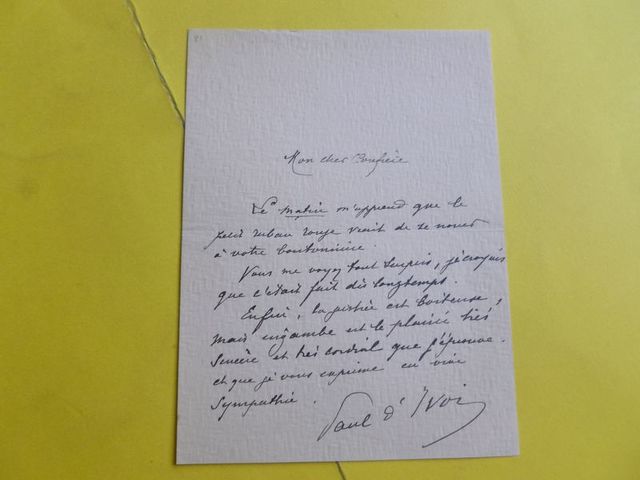 Mon cher Confrère
Le Matin m'apprend que le
petit ruban rouge vient de se nouer
à votre boutonnière.
Vous me voyez tout surpris, je croyais
que c'était fait dès longtemps.
Enfin, la justice est boiteuse,
mais ingambe est le plaisir très
sincère et très cordial que j'éprouve
et que je vous exprime en vive
sympathie.
Paul d'Ivoi